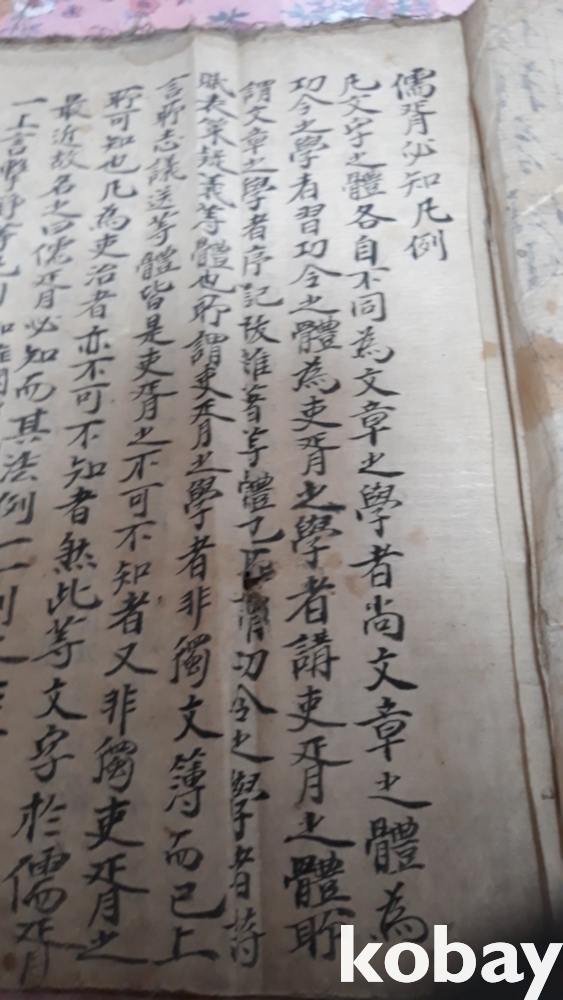 儒胥必知凡例
凡文字之體各自不同為文章之學者尚文章之體為
功令之學者習功令之體為吏胥之學者講吏胥之體所
謂文章之學者序記跋雜著等體已所謂功令之學者詩
賦表策疑義等體也所謂吏胥之學者非獨文簿而已上
言所志議送等體皆是吏胥之不可不知者又非獨吏胥之
所可知也凡為吏治者亦不可不知者然此等文字於儒胥
最近故名之曰儒胥必知而其法例一一
一上言擊錚等
kobay